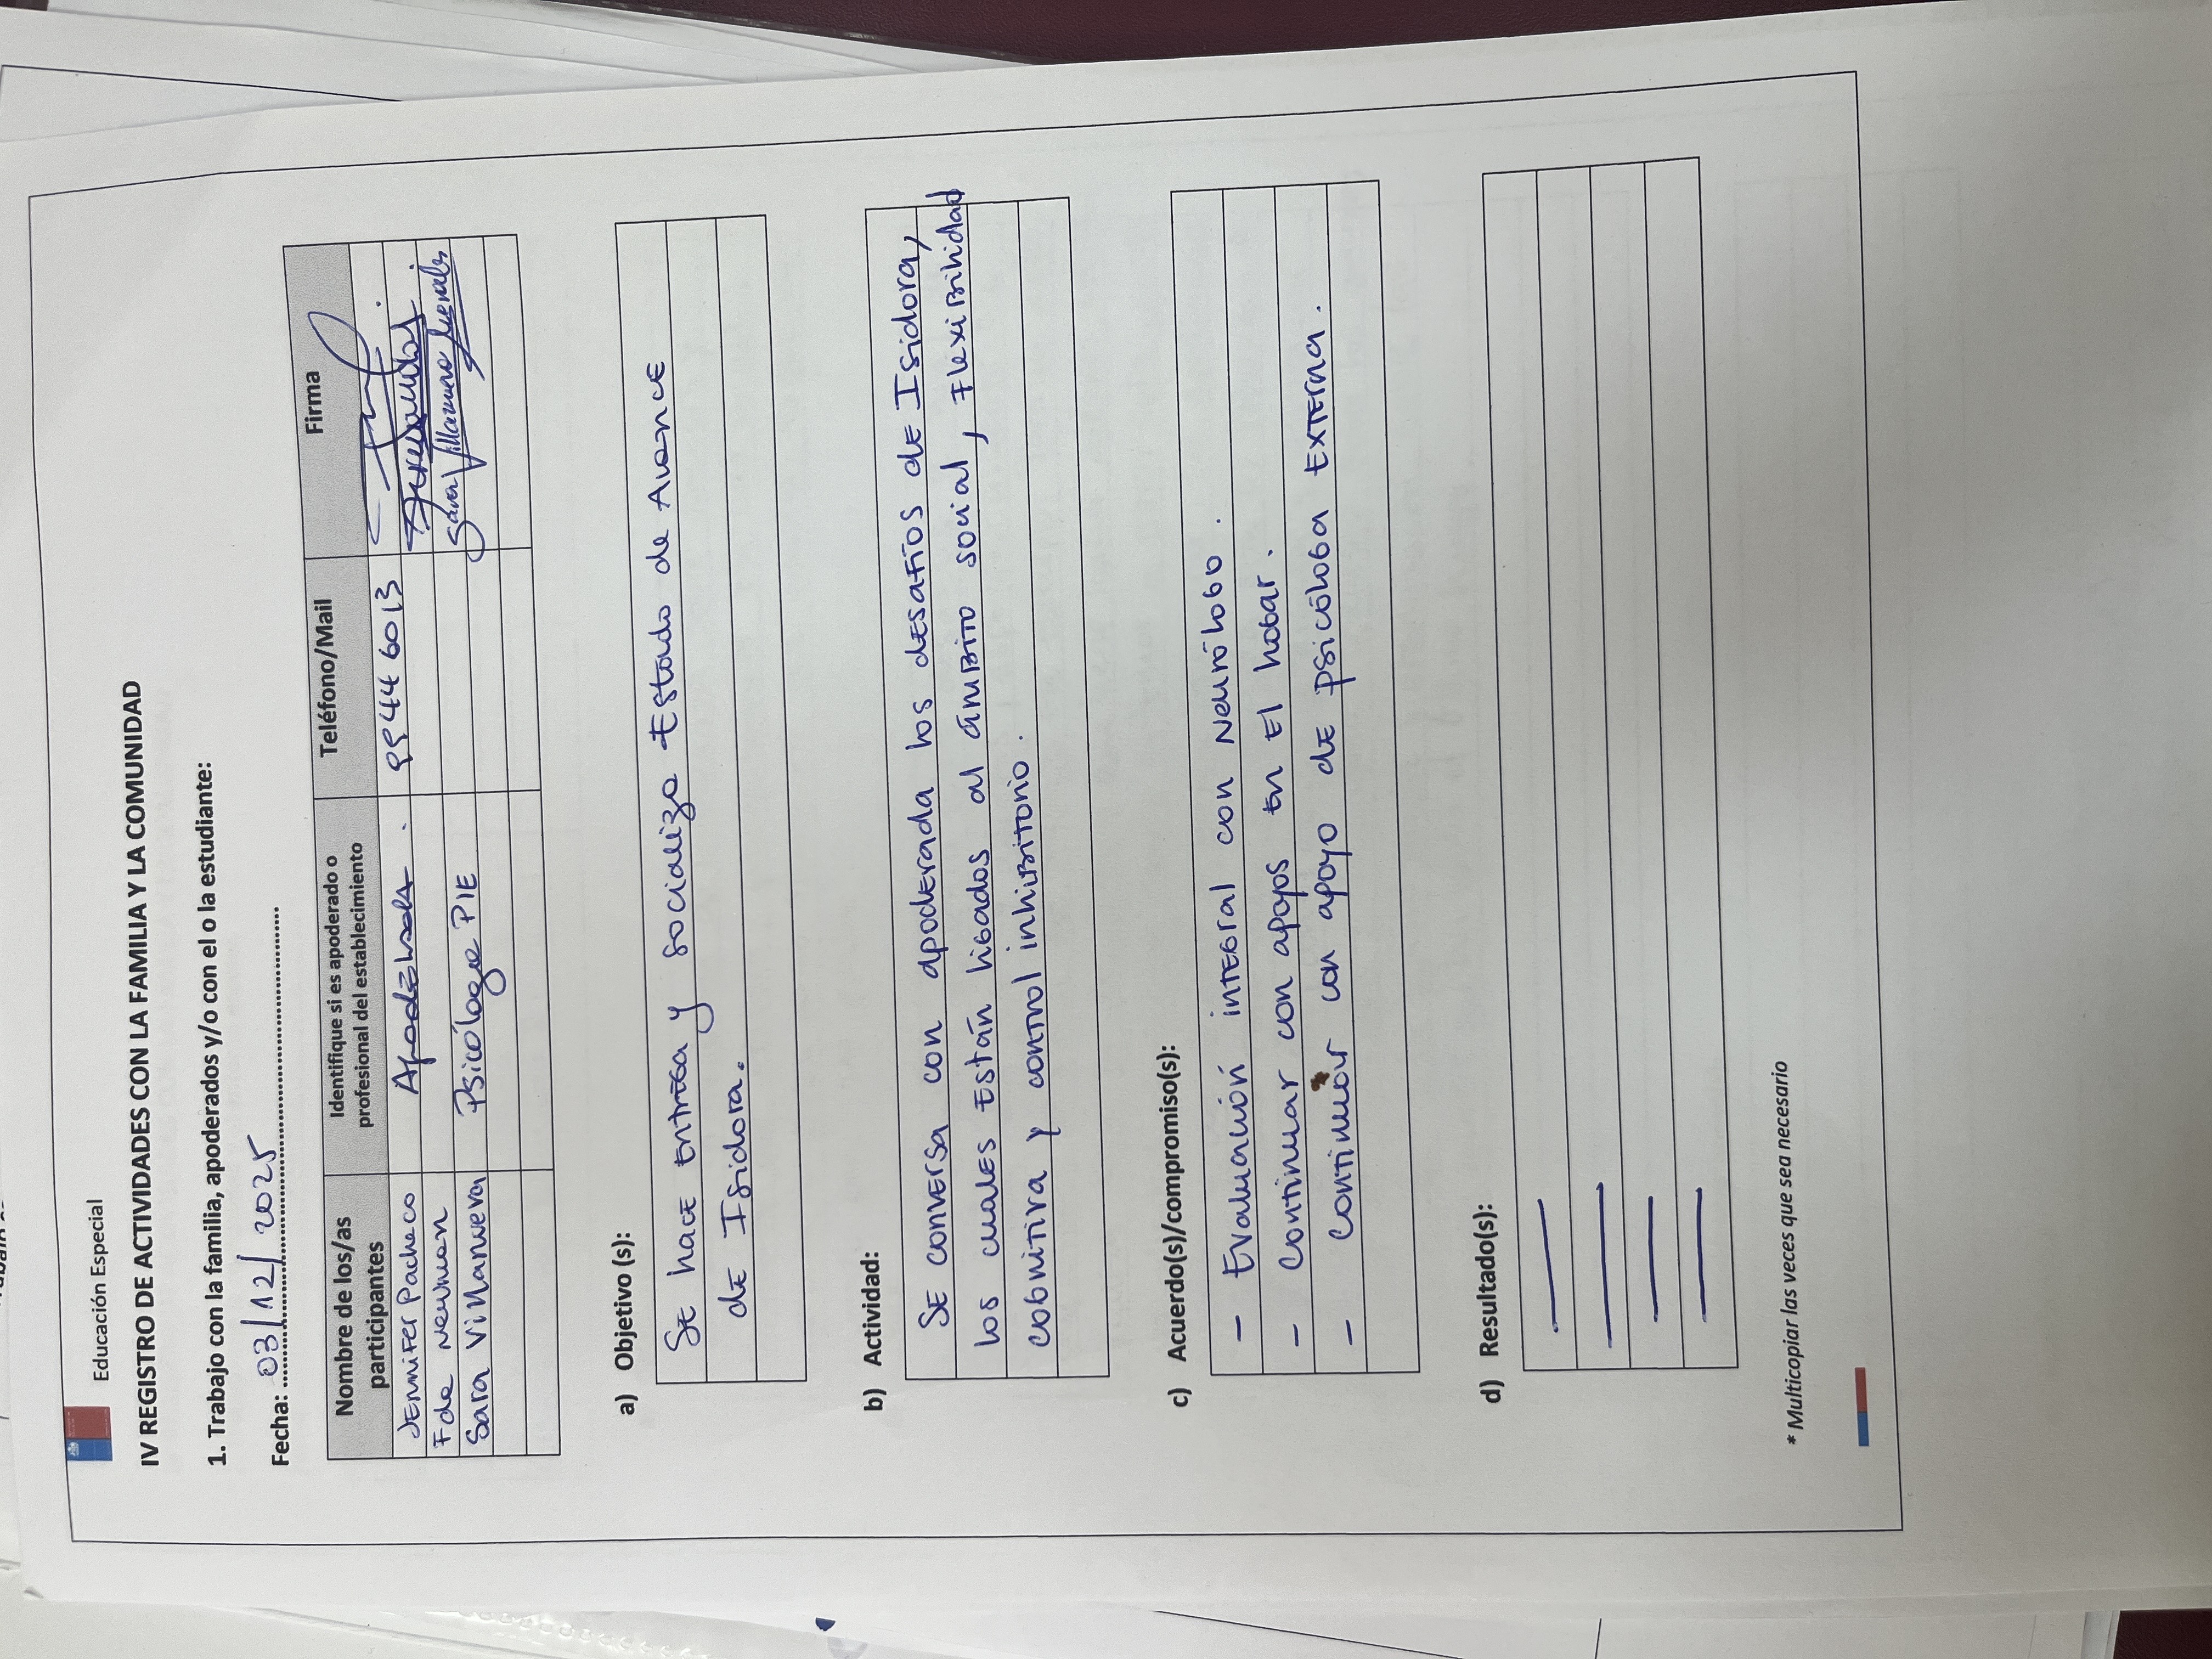 Educación Especial
IV REGISTRO DE ACTIVIDADES CON LA FAMILIA Y LA COMUNIDAD
1. Trabajo con la familia, apoderados y/o con el o la estudiante:
Fecha: 03/12/2025
Nombre de los/as participantes | Identifique si es apoderado o profesional del establecimiento | Teléfono/Mail | Firma
Jennifer Pacheco | Apoderada. | 99446013
Fda Neuman
Sara Villanueva | Psicóloga PIE | Sara Villanueva
a) Objetivo (s):
Se hace entrega y socializa Estado de Avance
de Isidora.
b) Actividad:
Se conversa con apoderada los desafíos de Isidora,
los cuales están ligados al ámbito social, flexibilidad
cognitiva y control inhibitorio.
c) Acuerdo(s)/compromiso(s):
- Evaluación integral con Neurólogo.
- Continuar con apoyos en el hogar.
- Continuar con apoyo de psicóloga externa.
d) Resultado(s):
* Multicopiar las veces que sea necesario